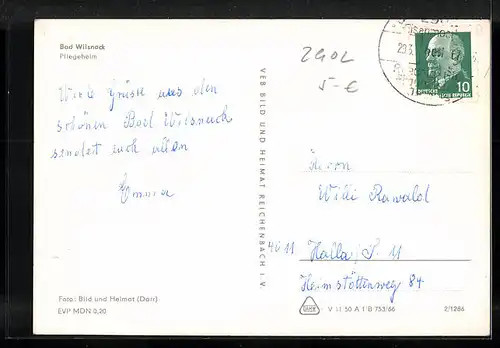 Bad Wilsnack
Pflegeheim
Viele Grüße aus dem
schönen Bad Wilsnack
sendet euch allen
Emma
Foto: Bild und Heimat (Darr)
EVP MDN 0,20
VEB BILD UND HEIMAT REICHENBACH I. V.
2GOL
5-€
10
Herrn
Willi Rawald
4011 Halla/S. 11
Heimstättenweg 84
V 11 50 A 1 B 753/66
2/1286